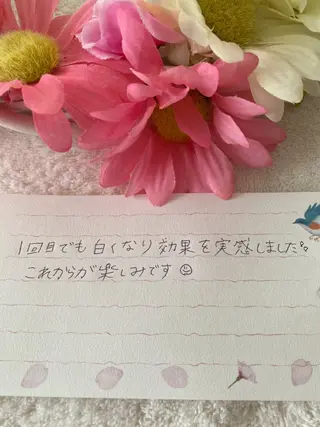 1回目でも白くなり効果を実感しました✨
これからが楽しみです☺